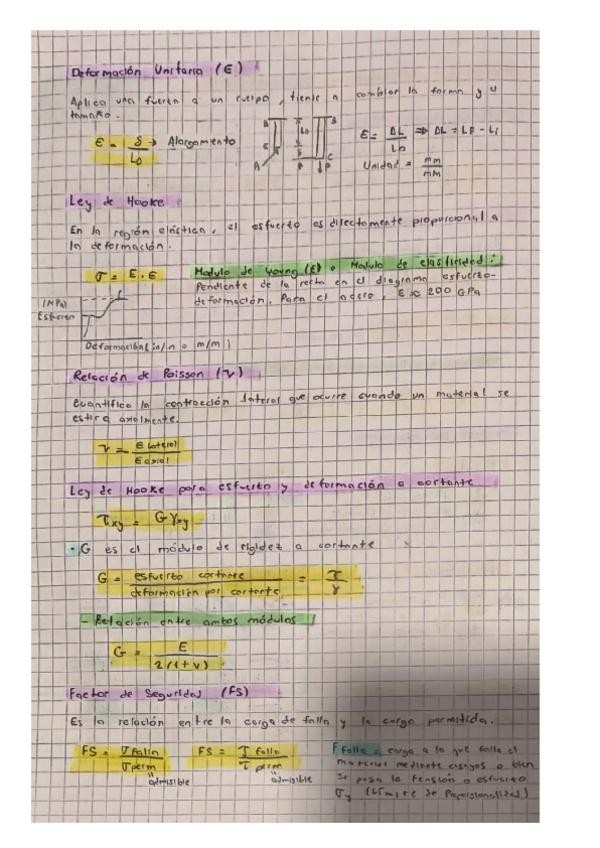 Deformación Unitaria (ε)
Aplica una fuerza a un cuerpo, tiende a cambiar la forma y u
tamaño.
ε = δ/L0 → Alargamiento
B
L0
C
δ
A
B
C
P
ε = ΔL/L0 ⇒ ΔL = LF - Li
Unidad = mm/mm
Ley de Hooke
En la región elástica, el esfuerzo es directamente proporcional a
la deformación.
σ = E . ε
Modulo de young (E) o Modulo de elasticidad:
Pendiente de la recta en el diagrama esfuerzo-
deformación. Para el acero, E ≈ 200 GPa
(MPa)
Deformación (in/in o m/m)
Relación de Poisson (ν)
Cuantifica la contracción lateral que ocurre cuando un material se
estira axialmente.
ν = ε lateral/ε axial
Ley de Hooke para esfuerzo y deformación a cortante
τxy = G γxy
· G es el módulo de rigidez a cortante
G = esfuerzo cortante/deformación por cortante = τ/γ
- Relación entre ambos módulos
G = E/2(1+ν)
Factor de Seguridad (FS)
Es la relación entre la carga de falla y la carga permitida.
FS = σ falla/σ perm
" admisible
FS = τ falla/τ perm
" admisible
F falla = carga a la que falla el
material mediante ensayos o bien
se pasa la tensión o esfuerzo
σy (Límite de